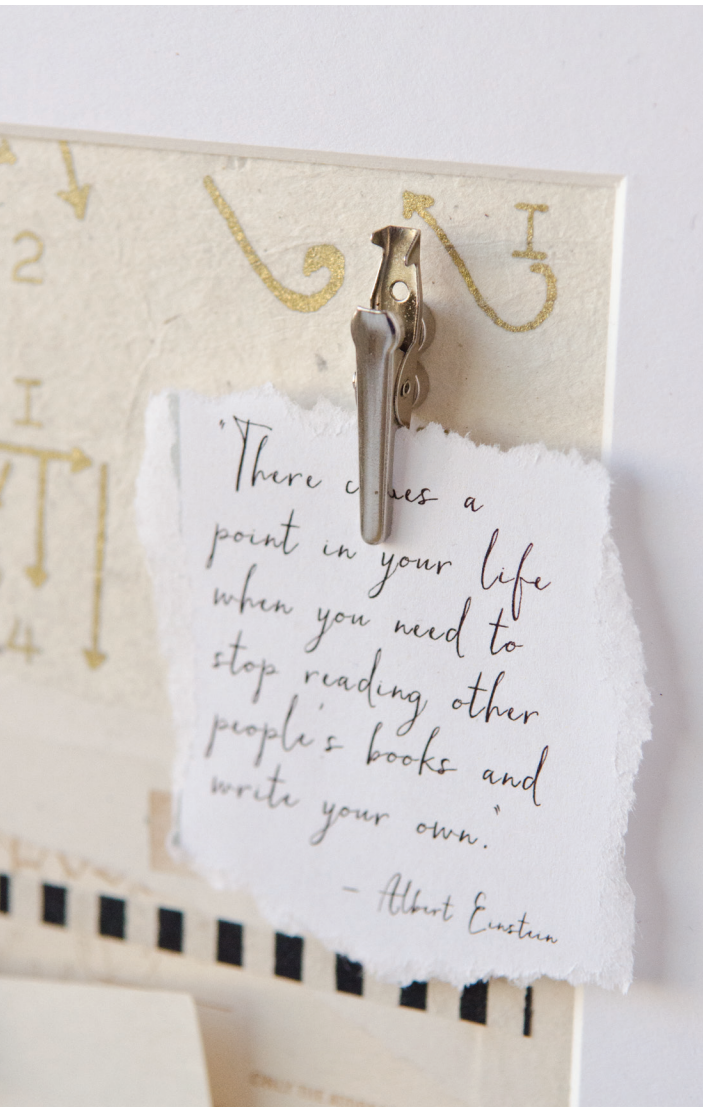 I
2
I
4
"There a
point in your life
when you need to
stop reading other
people's books and
write your own."
- Albert Einstein